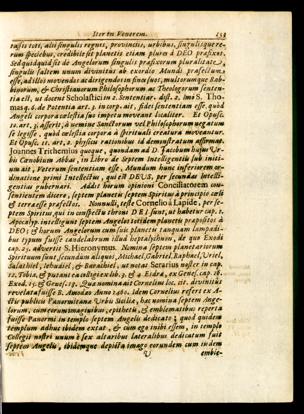 Iter in Venerem. 153
ratis toti, alii singulis regnis, provinciis, urbibus, singulisque re-
rum speciebus, credibile sit planetis etiam plura à DEO præfixos.
Sed quidquid sit de Angelorum singulis præfixorum pluralitate,
singulis saltem unum divinitus ab exordio Mundi præfectum
esse, ad illos movendos ac dirigendos in fines suos, multorumque Rab-
binorum, & Christianorum Philosophorum ac Theologorum senten-
tia est, ut docent Scholastici in 2. Sententiar. dist. 2. imò S. Tho-
mas q. 6. de Potentia art. 3. in corp. ait, fidei sententiam esse, quòd
Angeli corpora cœlestia suo imperio moveant localiter. Et Opusc.
11. art. 3. asserit, à nemine Sanctorum vel Philosophorum negatum
se legisse, quòd cœlestia corpora à spirituali creatura moveantur.
Et Opusc. 11. art. 2. physica rationibus id demonstratum affirmat.
Joannes Trithemius quoque, quondam ad D. Jacobum hujus Ur-
bis Cœnobium Abbas, in Libro de Septem Intelligentiis sub initi-
um ait, Veterum sententiam esse, Mundum hunc inferiorem or-
dinatione primi Intellectus, qui est DEUS, per secundas Intelli-
gentias gubernari. Addit horum opinioni Conciliatorem con-
sentientem dicere, septem planetis septem Spiritus à principio cœli
& terræ esse præfectos. Nonnulli, teste Cornelio à Lapide, per se-
ptem Spiritus qui in conspectu throni DEI sunt, ut habetur cap. 1.
Apocalyp. intelligunt septem Angelos totidem planetis præpositos à
DEO; & horum Angelorum cum suis planetis tanquam lampadi-
bus typum fuisse candelabrum illud heptalychnum, de quo Exodi
cap. 25. adverit S. Hieronymus. Nomina septem planetariorum
Spirituum sunt secundum aliquos, Michael, Gabriel, Raphael, Uriel,
Salathiel, Jehudiel, & Barachiel, ut notat Serarius noster in cap.
12. Tobiæ, & putant ea colligere lib. 3. & 4. Esdræ, ex Genes. cap. 16.
Exod. 15. & Genes. 19. Qua nomina ait Cornelius loc. cit. divinitus
revelata fuisse B. Amadeo Anno 1460. Idem Cornelius refert ex a-
ctis publicis Panormitana Urbis Sicilia, hac nomina septem Ange-
lorum, cum eorum imaginibus, epithetis, & emblematibus reperta
fuisse Panormi in templo septem Angelis dedicato; quod quidem
templum adhuc ibidem extat, & cum ego inibi essem, in templo
Collegii nostri unum è sex altaribus lateralibus dedicatum fuit
septem Angelis, ibidemque depicta imago eorundem cum iisdem
V emble-